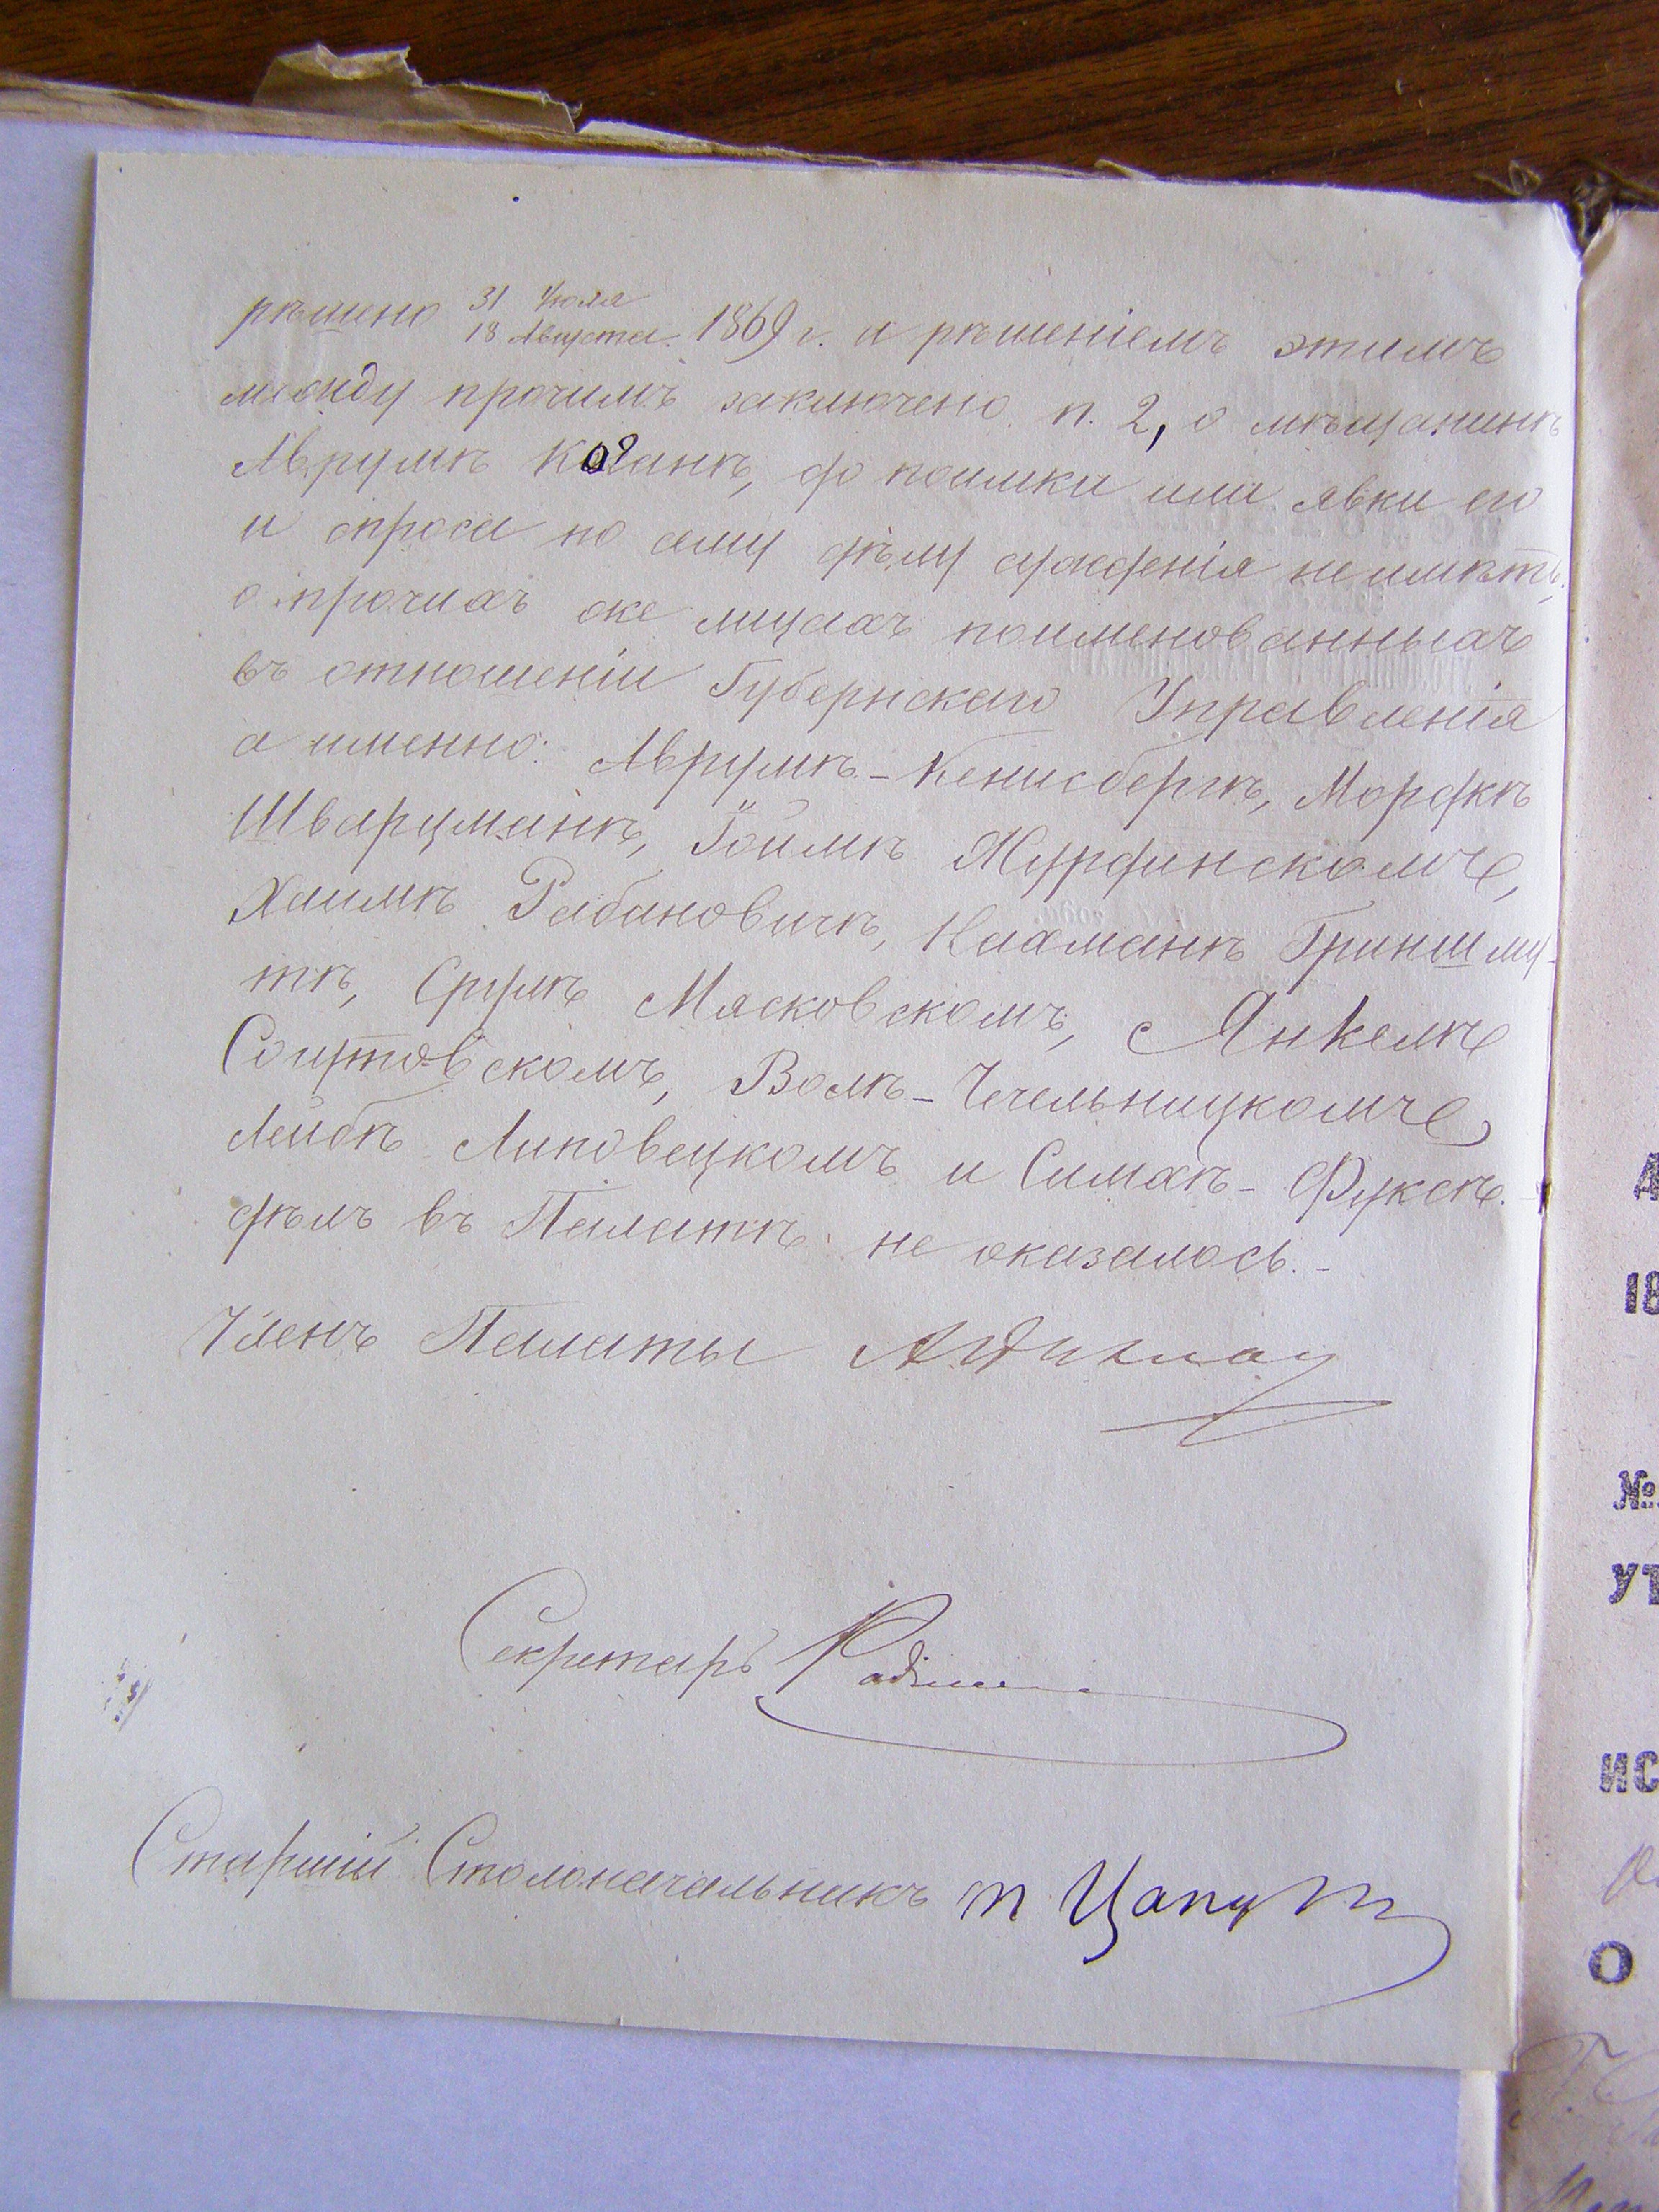 рѣшено 31 Іюля
18 Августа 1869 г. и рѣшеніемъ этимъ
между прочимъ заключено п. 2, о мѣщанинѣ
Аврумѣ Коганѣ, до поимки или явки его
и спроса по сему дѣлу сужденія не имѣть,
о прочихъ же лицахъ поименованныхъ
въ отношеніи Губернскаго Управленія
а именно: Аврумѣ-Кенисбергѣ, Мордкѣ
Шварцманѣ, Іойлѣ Журфинскомъ,
Хаимѣ Рабановичѣ, Нахманѣ Гриншму-
тѣ, Срулѣ Мясковскомъ, Янкелѣ
Волѣ-Чечельницкомъ
Лейбѣ Липовецкомъ и Симхѣ-Фуксѣ
дѣлъ въ Палатѣ не оказалось.-
Членъ Палаты
Секретарь
Старшій Столоначальникъ
А
18
№
УТ
ИС
О